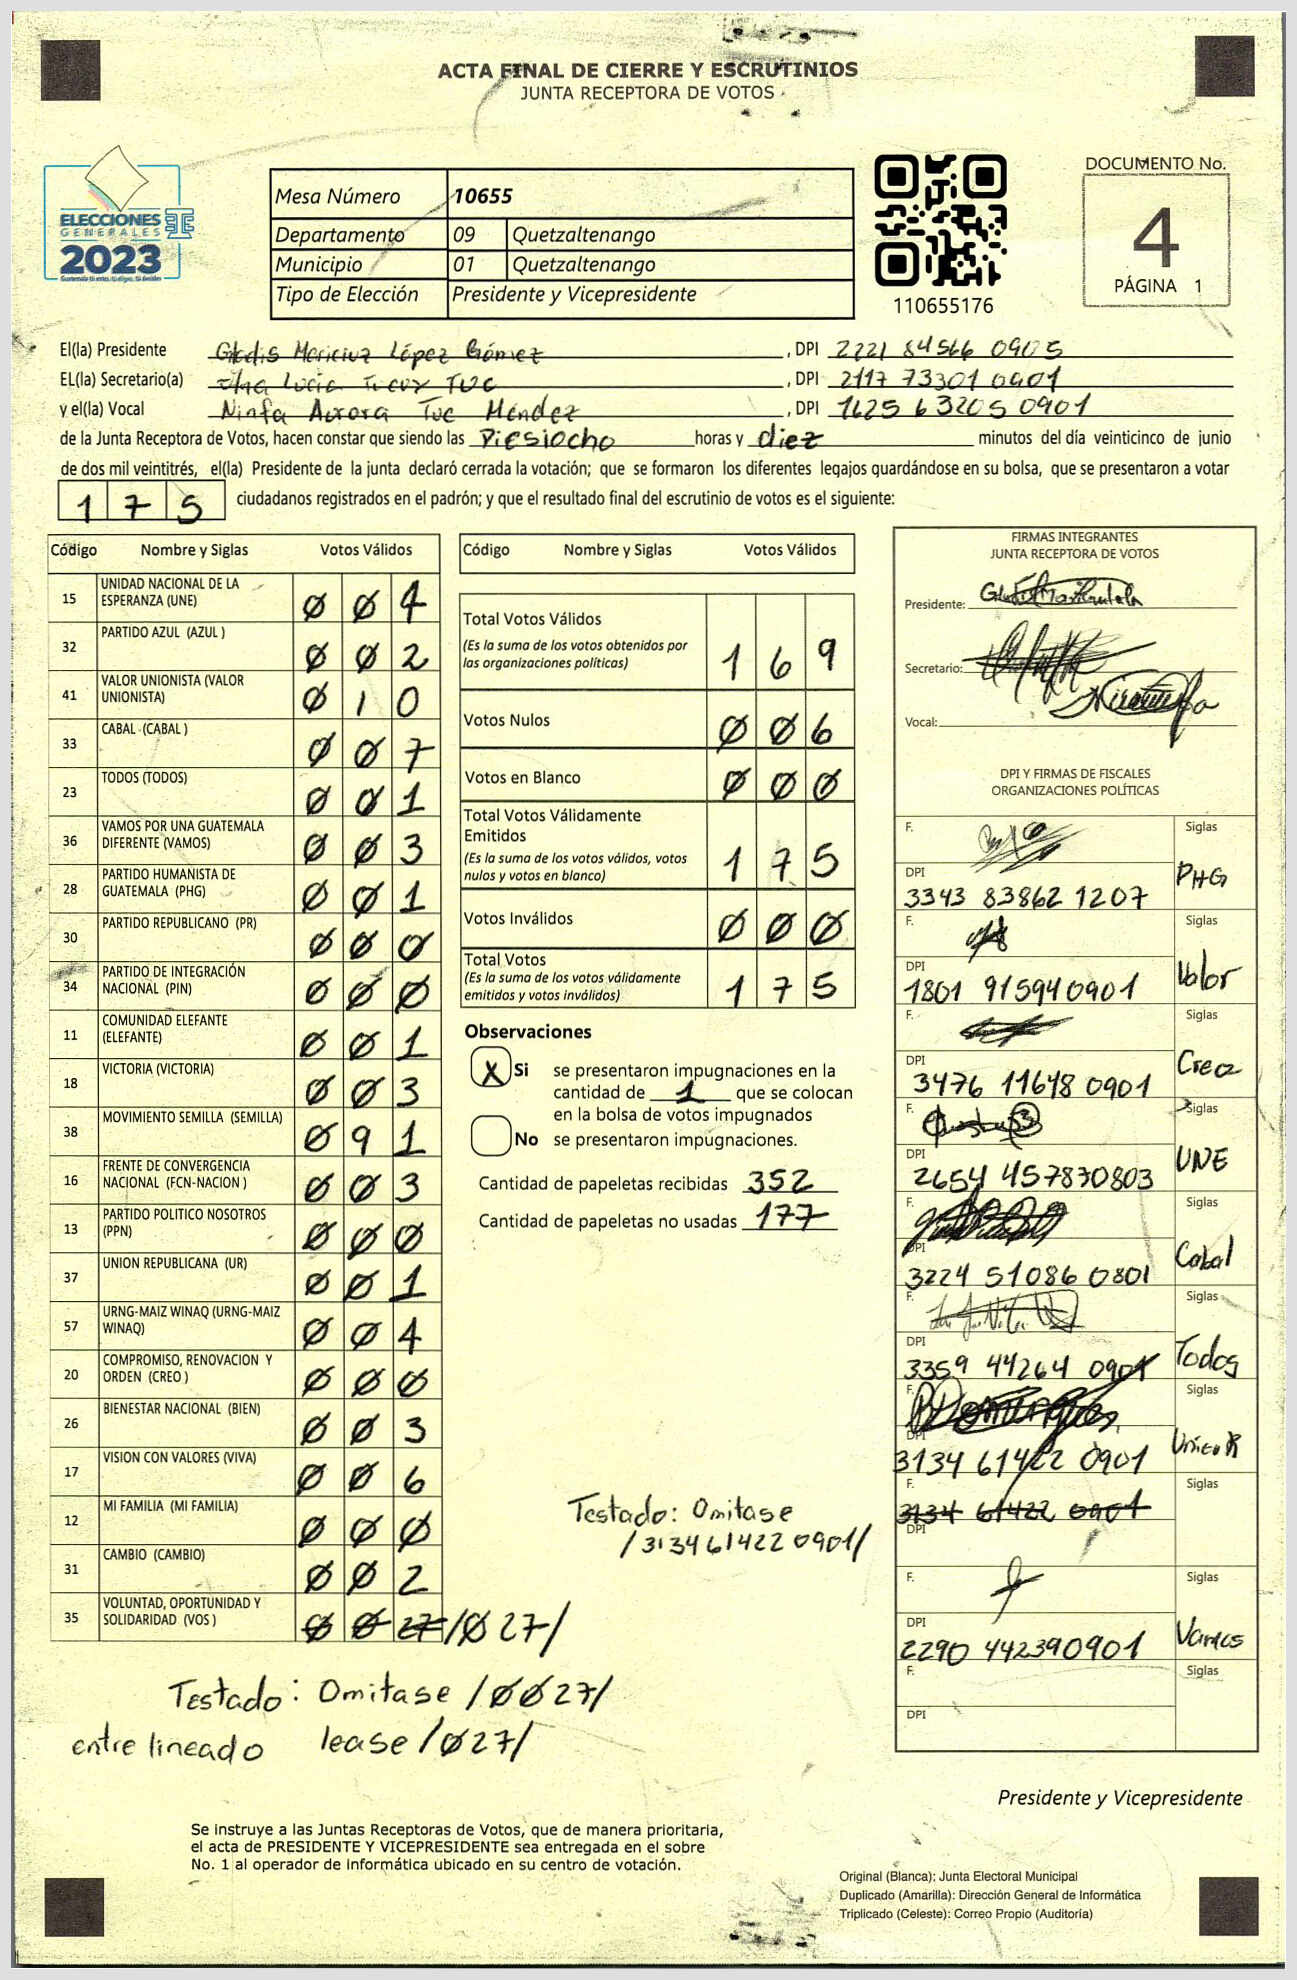 ACTA FINAL DE CIERRE Y ESCRUTINIOS
JUNTA RECEPTORA DE VOTOS
ELECCIONES
GENERALES
2023
Mesa Número 10655
Departamento 09 Quetzaltenango
Municipio 01 Quetzaltenango
Tipo de Elección Presidente y Vicepresidente
110655176
DOCUMENTO No.
4
PÁGINA 1
El(la) Presidente López Gómez, DPI 2221 84566 0905
EL(la) Secretario(a) Lucia Tuc, DPI 2117 73301 0901
y el(la) Vocal Ninfa Aurora Tuc Méndez, DPI 1625 63205 0901
de la Junta Receptora de Votos, hacen constar que siendo las Diesiocho horas y diez minutos del día veinticinco de junio
de dos mil veintitrés, el(la) Presidente de la junta declaró cerrada la votación; que se formaron los diferentes legajos guardándose en su bolsa, que se presentaron a votar
175 ciudadanos registrados en el padrón; y que el resultado final del escrutinio de votos es el siguiente:
Código Nombre y Siglas Votos Válidos
15 UNIDAD NACIONAL DE LA ESPERANZA (UNE) 004
32 PARTIDO AZUL (AZUL ) 002
41 VALOR UNIONISTA (VALOR UNIONISTA) 010
33 CABAL (CABAL ) 007
23 TODOS (TODOS) 001
36 VAMOS POR UNA GUATEMALA DIFERENTE (VAMOS) 003
28 PARTIDO HUMANISTA DE GUATEMALA (PHG) 001
30 PARTIDO REPUBLICANO (PR) 000
34 PARTIDO DE INTEGRACIÓN NACIONAL (PIN) 000
11 COMUNIDAD ELEFANTE (ELEFANTE) 001
18 VICTORIA (VICTORIA) 003
38 MOVIMIENTO SEMILLA (SEMILLA) 091
16 FRENTE DE CONVERGENCIA NACIONAL (FCN-NACION ) 003
13 PARTIDO POLITICO NOSOTROS (PPN) 000
37 UNION REPUBLICANA (UR) 001
57 URNG-MAIZ WINAQ (URNG-MAIZ WINAQ) 004
20 COMPROMISO, RENOVACION Y ORDEN (CREO ) 000
26 BIENESTAR NACIONAL (BIEN) 003
17 VISION CON VALORES (VIVA) 006
12 MI FAMILIA (MI FAMILIA) 000
31 CAMBIO (CAMBIO) 002
35 VOLUNTAD, OPORTUNIDAD Y SOLIDARIDAD (VOS ) 0027 /027/
Testado: Omitase /0027/
entre lineado lease /027/
Código Nombre y Siglas Votos Válidos
Total Votos Válidos
(Es la suma de los votos obtenidos por las organizaciones políticas) 169
Votos Nulos 006
Votos en Blanco 000
Total Votos Válidamente Emitidos
(Es la suma de los votos válidos, votos nulos y votos en blanco) 175
Votos Inválidos 000
Total Votos
(Es la suma de los votos válidamente emitidos y votos inválidos) 175
Observaciones
X Si se presentaron impugnaciones en la
cantidad de 1 que se colocan
en la bolsa de votos impugnados
No se presentaron impugnaciones.
Cantidad de papeletas recibidas 352
Cantidad de papeletas no usadas 177
Testado: Omitase
/3134614220901/
FIRMAS INTEGRANTES
JUNTA RECEPTORA DE VOTOS
Presidente:
Secretario:
Vocal:
DPI Y FIRMAS DE FISCALES
ORGANIZACIONES POLÍTICAS
F. Siglas
DPI 3343 83862 1207 PHG
F. Siglas
DPI 1801 91594 0901 Valor
F. Siglas
DPI 3476 11648 0901 Creo
F. Siglas
DPI 2654 45783 0803 UNE
F. Siglas
DPI 3224 51086 0801 Cabal
F. Siglas
DPI 3359 44264 0901 Todos
F. Siglas
DPI 3134 61422 0901
F. Siglas
3134 61422 0901
DPI
F. Siglas
DPI 2290 44239 0901 Vamos
F. Siglas
DPI
Presidente y Vicepresidente
Se instruye a las Juntas Receptoras de Votos, que de manera prioritaria,
el acta de PRESIDENTE Y VICEPRESIDENTE sea entregada en el sobre
No. 1 al operador de informática ubicado en su centro de votación.
Original (Blanca): Junta Electoral Municipal
Duplicado (Amarilla): Dirección General de Informática
Triplicado (Celeste): Correo Propio (Auditoría)